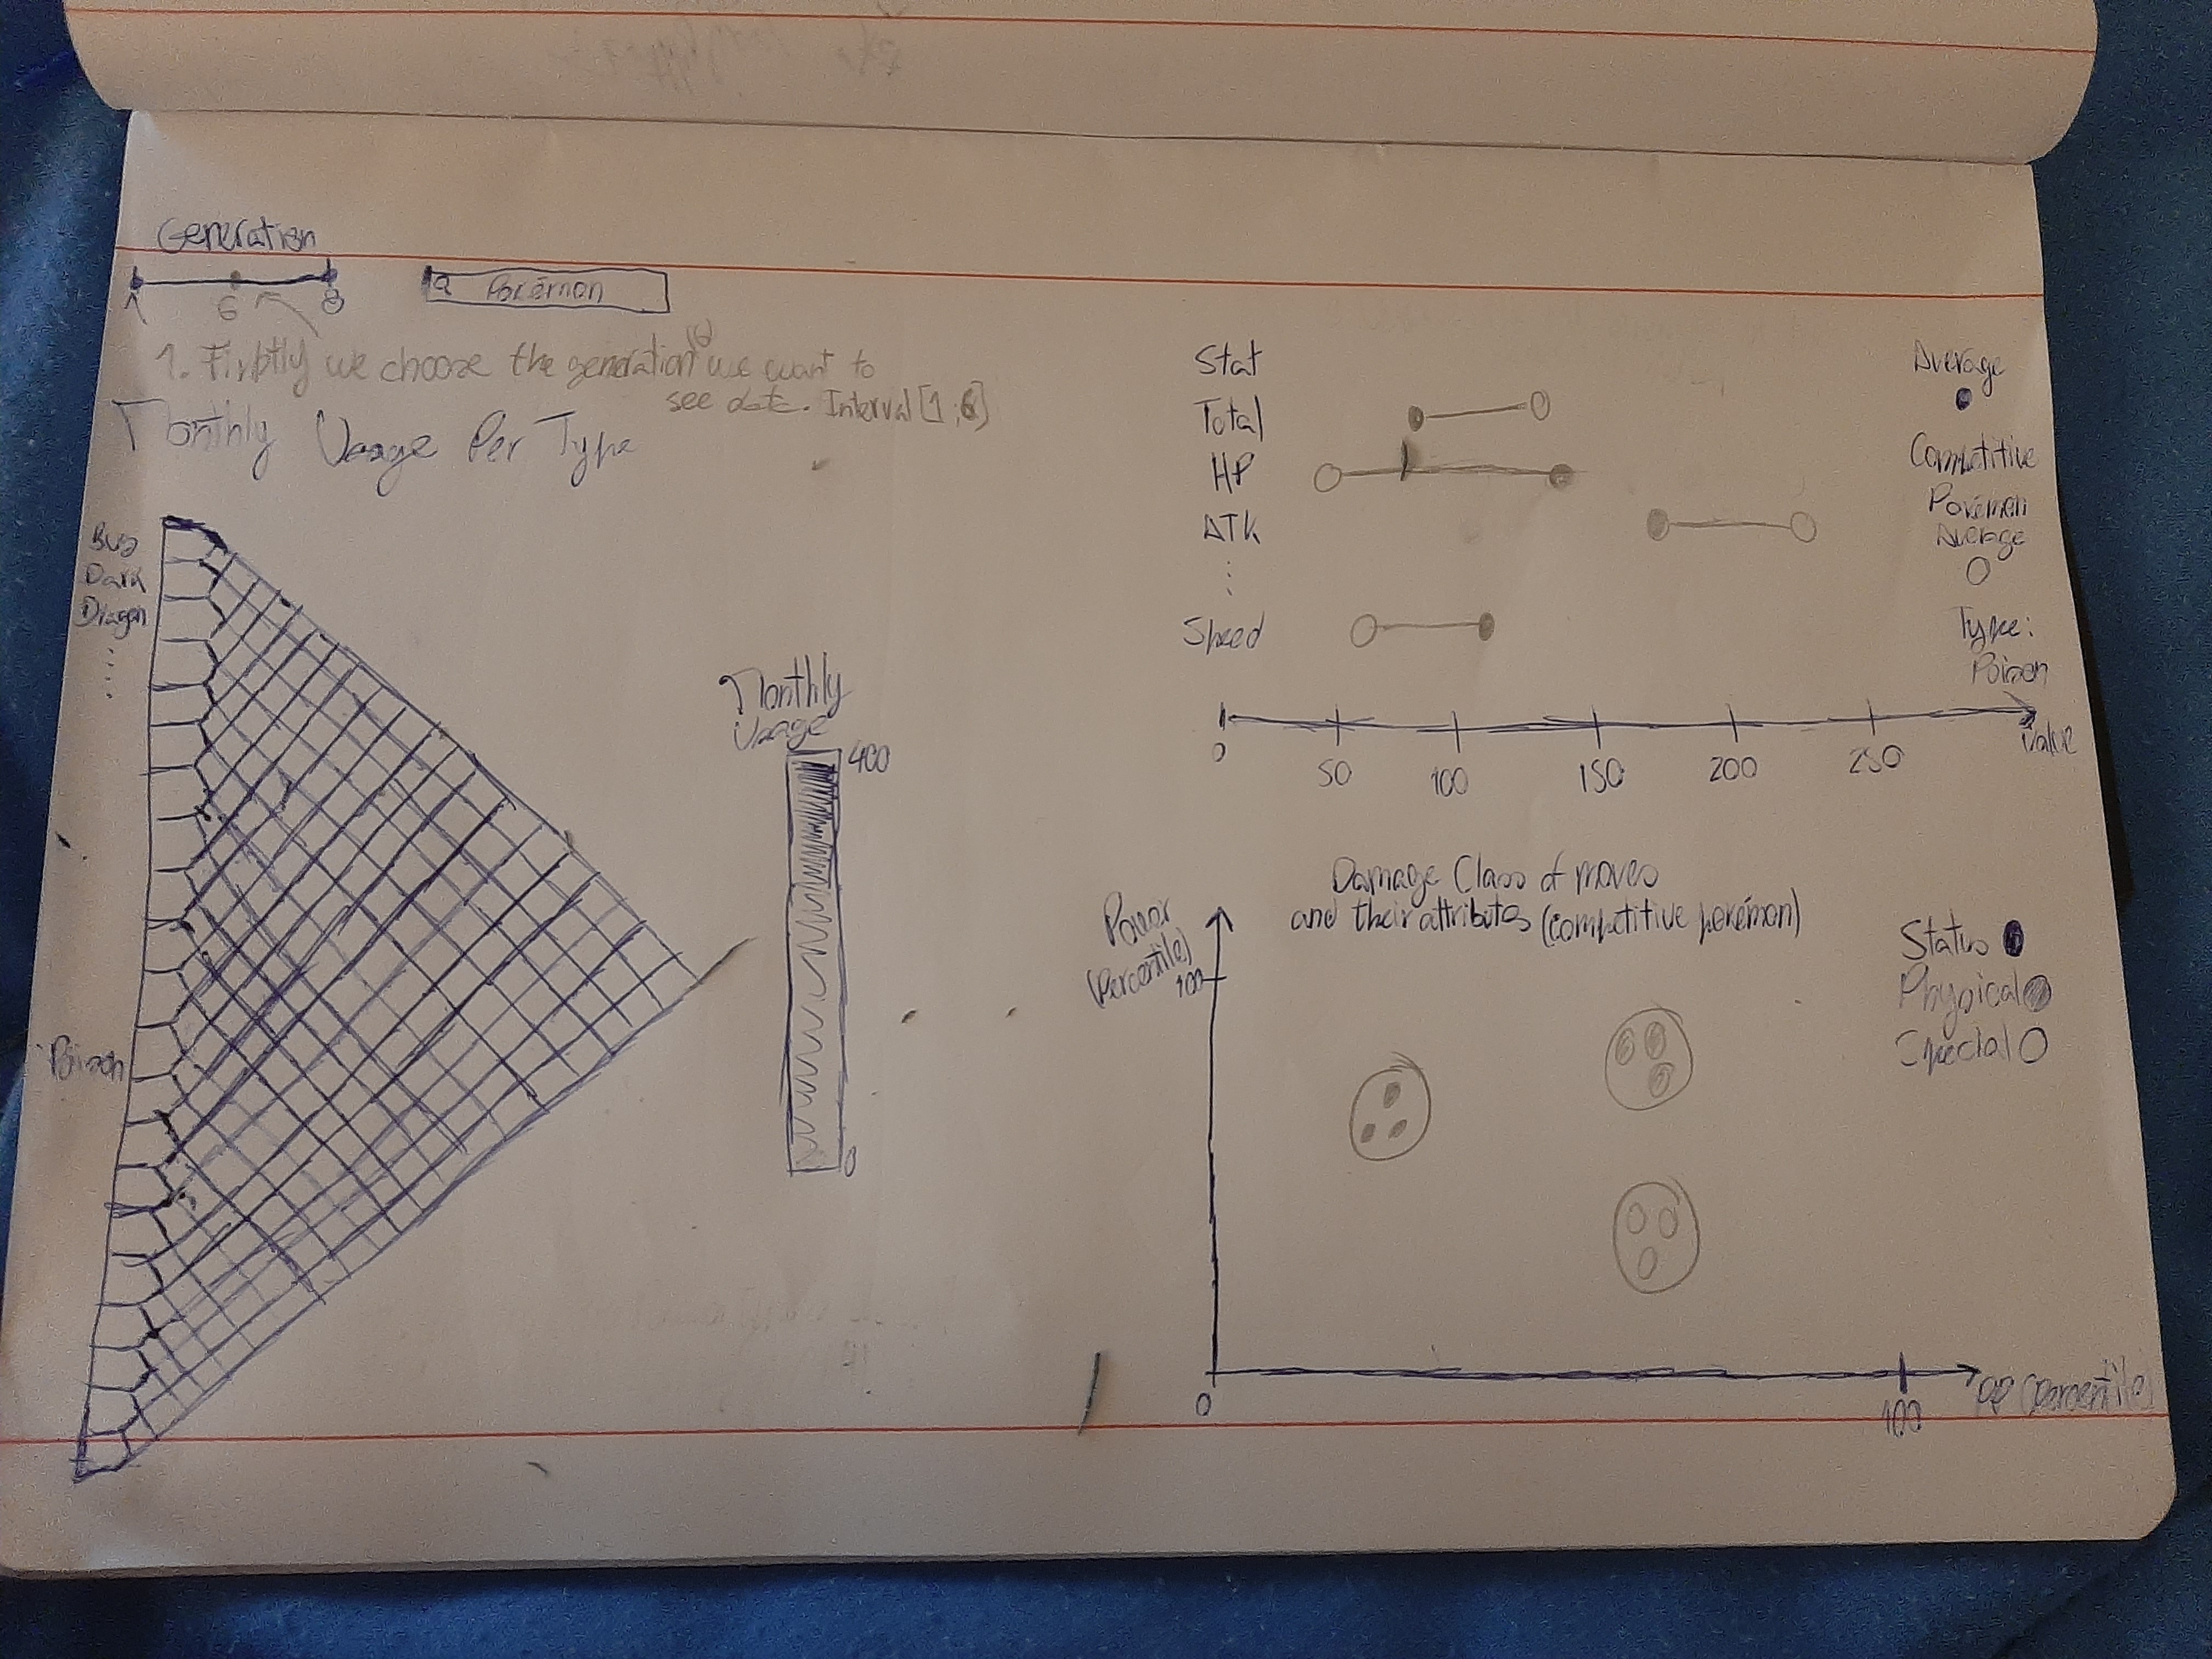 Generation
1 6 8
1a Pokémon
1. Firstly we choose the generation we want to
see data. Interval [1,6]
Monthly Usage Per Type
Bug
Dark
Dragon
Poison
Monthly
Usage
400
0
Stat
Total
HP
ATK
Speed
0 50 100 150 200 250 Value
Average
Competitive
Pokémon
Average
Type:
Poison
Damage Class of moves
and their attributes (competitive pokémon)
Power
(percentile)
100
0
100
PP (percentile)
Status
Physical
Special